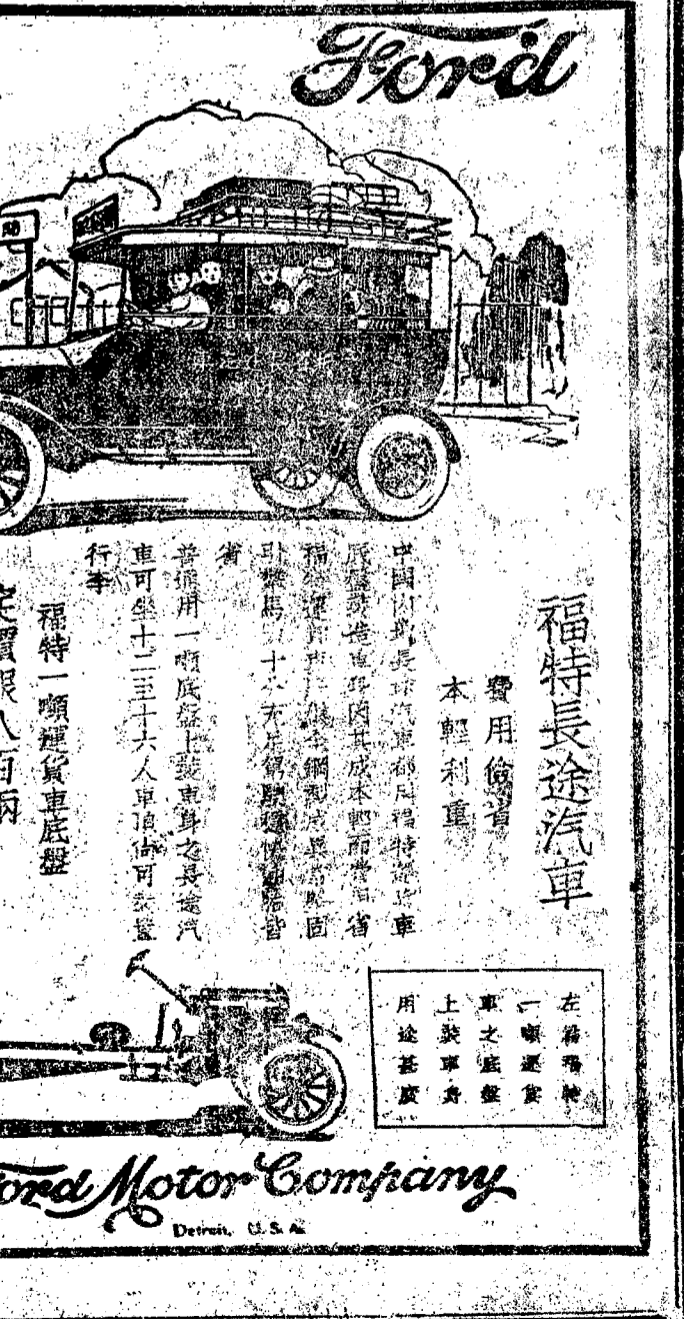 Ford
福特長途汽車
費用儉省
本輕利重
中國內地長途汽車都用福特運貨車
底盤裝造車身因其成本輕而費油省
福特運貨車全鋼製成異常堅固
引擎馬力十分充足駕駛穩快皆
省
普通用一噸底盤上裝車身之長途汽
車可坐十二至十六人車頂尚可裝置
行李
福特一噸運貨車底盤
定價銀八百兩
左福特
一噸運貨
車之底盤
上裝車身
用途甚廣
Ford Motor Company
Detroit, U.S.A.